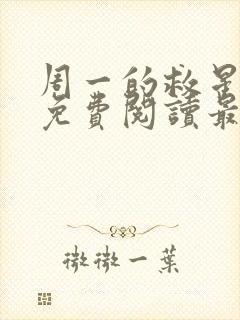 周一的救星
免費閱讀最
微微一葉